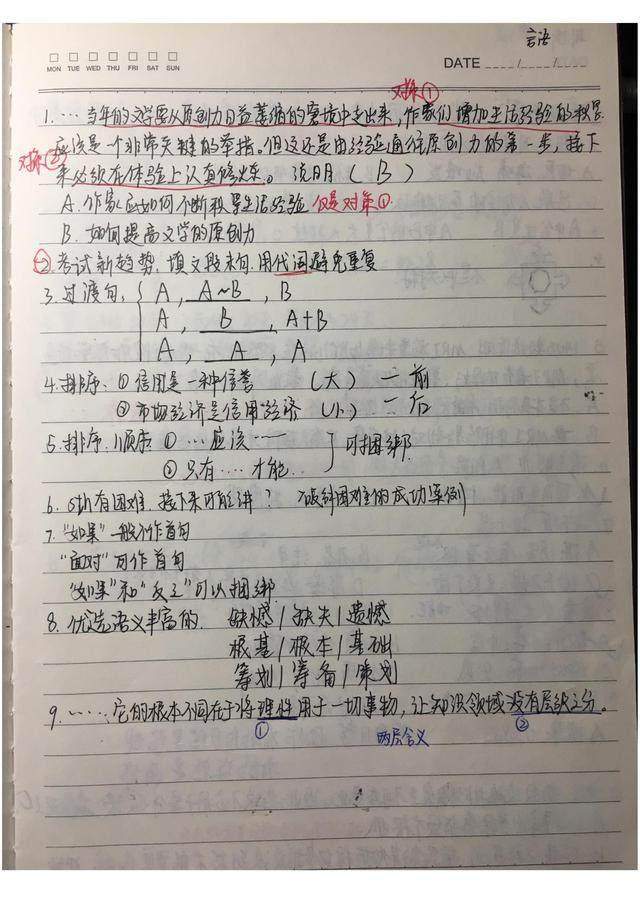 言语
MON TUE WED THU FRI SAT SUN
DATE
对策①
1. … 当年的文学要从原创力日益萎缩的窘境中走出来, 作家们增加生活经验的积累
应该是一个非常关键的举措。但这还是由经验通往原创力的第一步, 接下
对策②
来必须在体验上认真修炼。 说明 ( B )
A. 作家应如何不断积累生活经验 仅是对策①
B. 如何提高文学的原创力
2. 考试新趋势. 填文段末句. 用代词避免重复
3. 过渡句. A, A~B, B
A, B, A+B
A, A, A
4. 排序. ① 信用是一种信誉 (大) 一 前
② 市场经济是信用经济 (小) 一 后
5. 排序. 顺序 ① …应该…
② 只有…才能..
可捆绑
6. 有困难. 接下来可能讲? 破解困难的成功案例
7. "如果"一般不作首句
"面对"可作首句
"如果"和"反之"可以捆绑
8. 优先语义丰富的. 缺憾 | 缺失 | 遗憾
根基 | 根本 | 基础
筹划 | 筹备 | 策划
9. …… 它的根本不同在于将理性用于一切事物, 让知识领域没有层级之分。
① 两层含义 ②